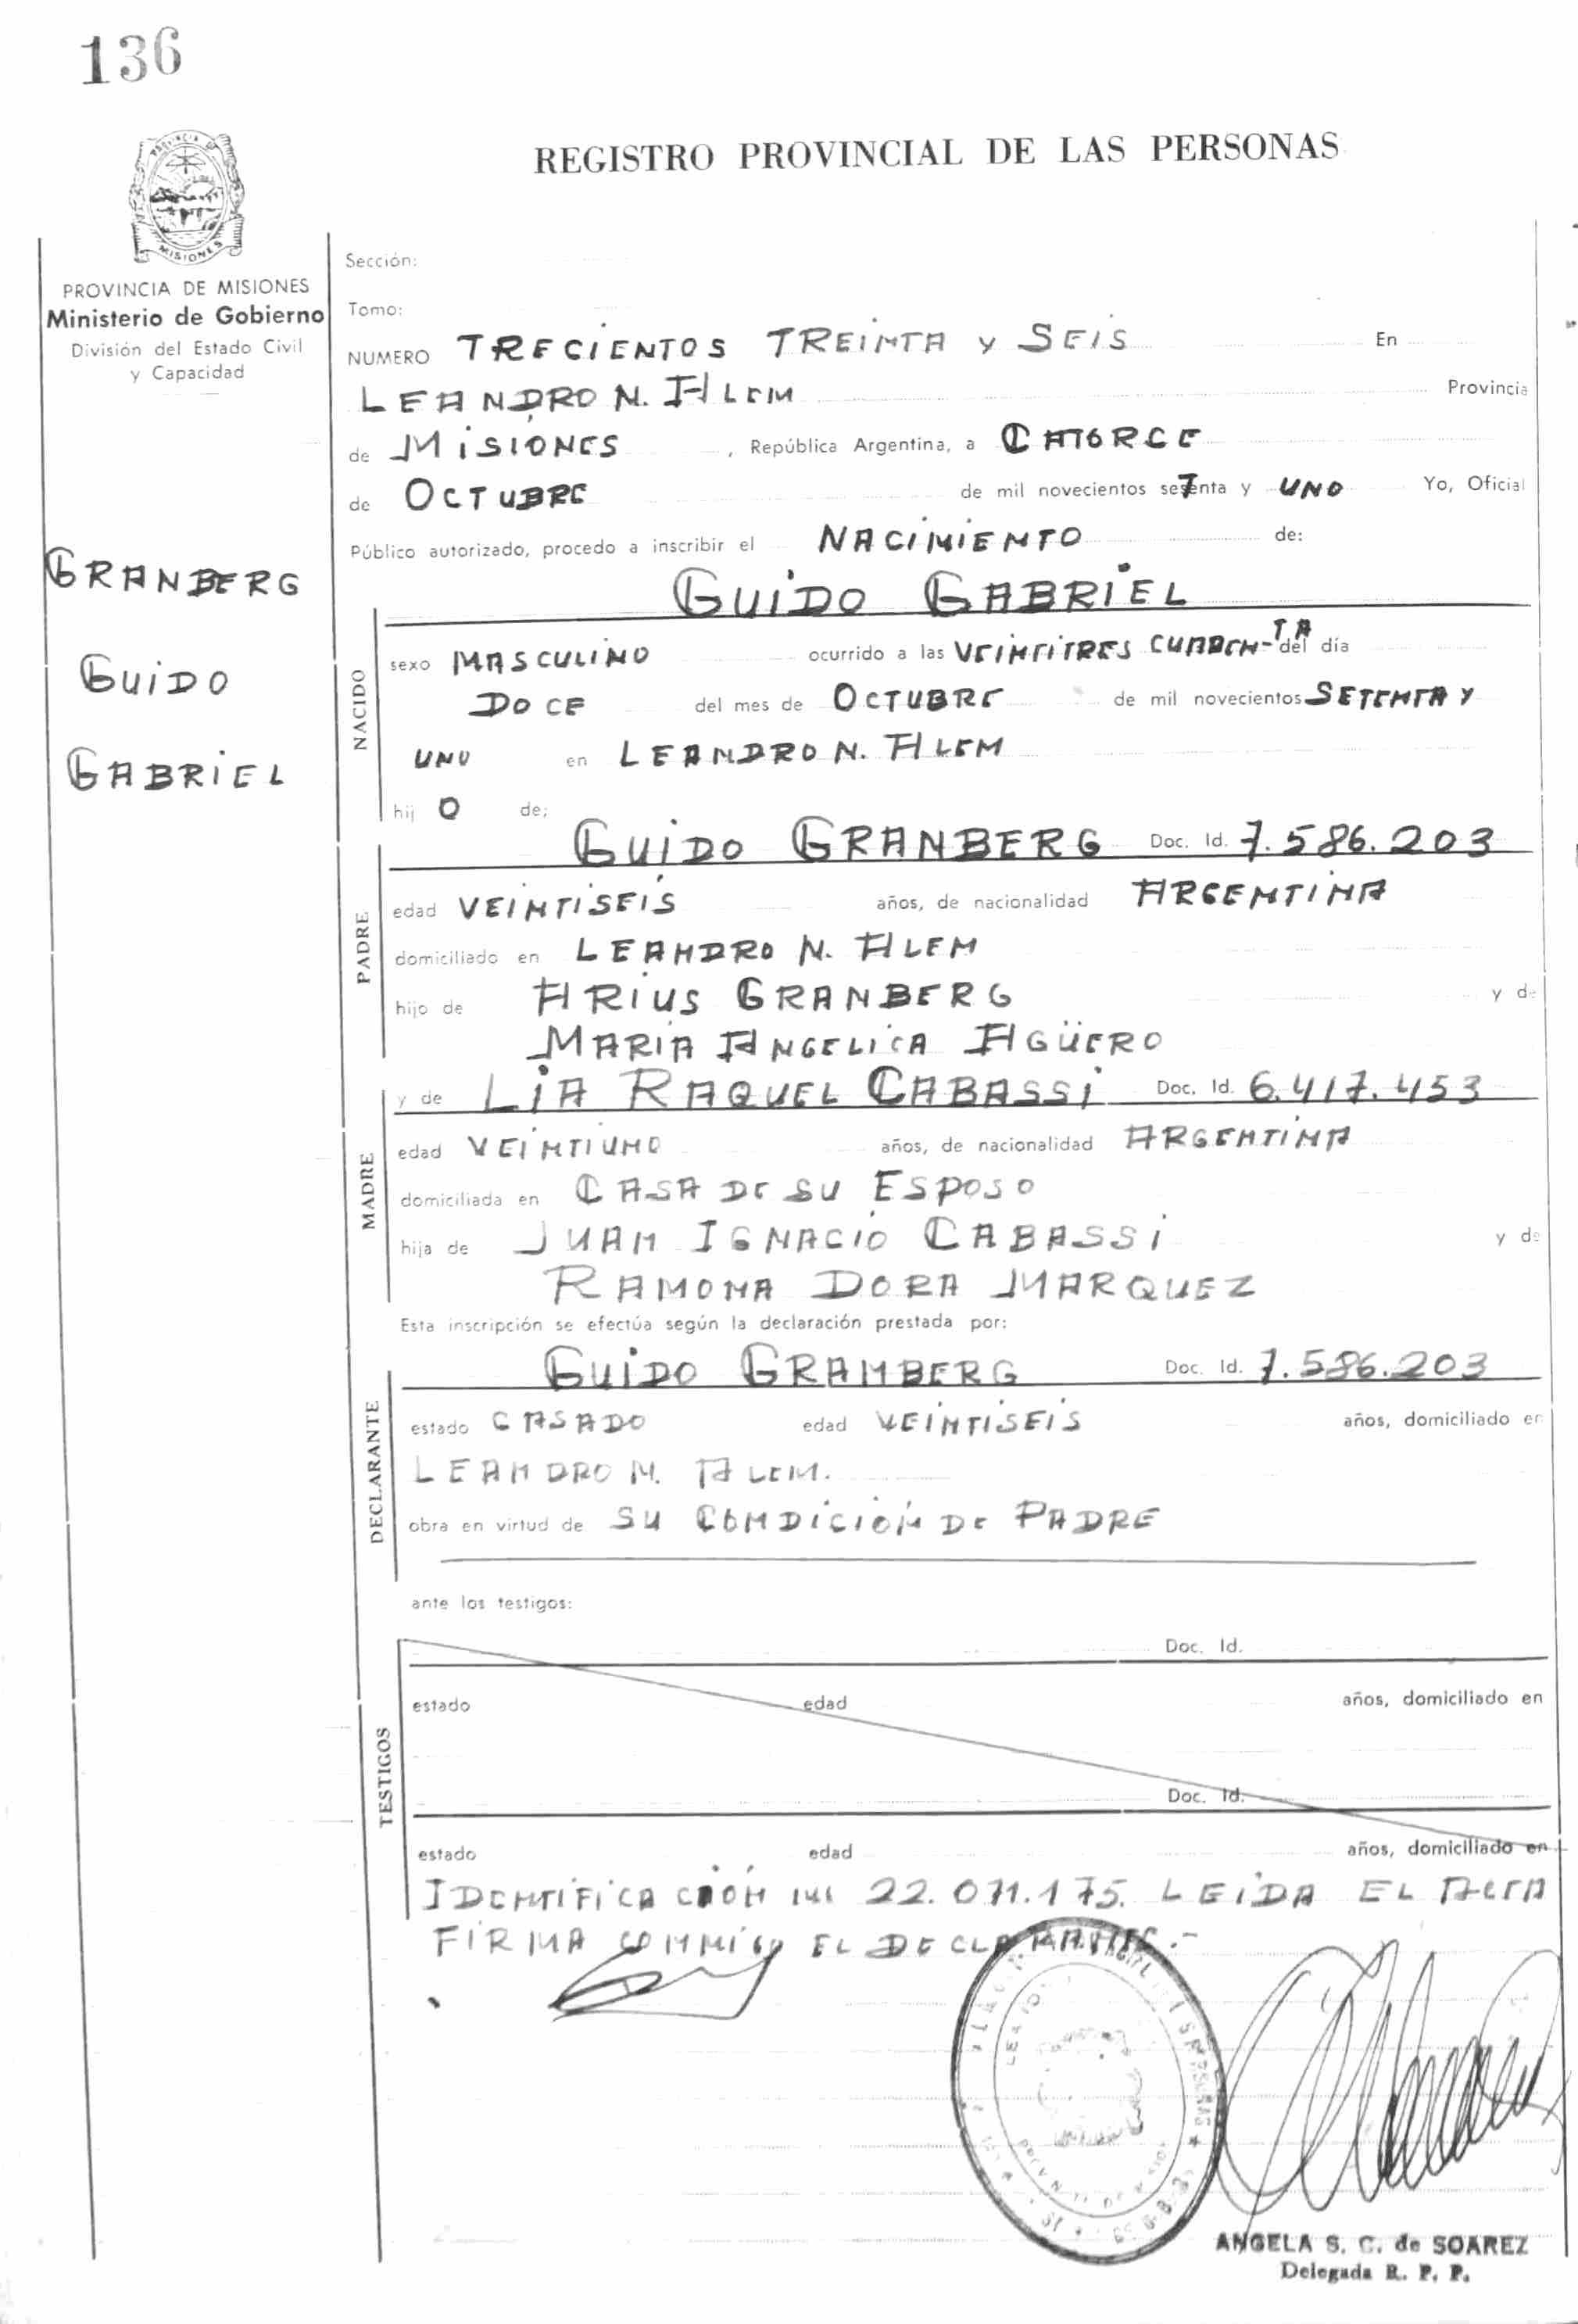 136
REGISTRO PROVINCIAL DE LAS PERSONAS
PROVINCIA
MISIONES
PROVINCIA DE MISIONES
Ministerio de Gobierno
División del Estado Civil
y Capacidad
GRANBERG
GUIDO
GABRIEL
Sección:
Tomo:
NUMERO TRECIENTOS TREINTA Y SEIS En
LEANDRO N. ALEM Provincia
de MISIONES, República Argentina, a CATORCE
de OCTUBRE de mil novecientos setenta y UNO Yo, Oficial
Público autorizado, procedo a inscribir el NACIMIENTO de:
GUIDO GABRIEL
NACIDO
sexo MASCULINO ocurrido a las VEINTITRES CUAREN-TA del día
DOCE del mes de OCTUBRE de mil novecientos SETENTA Y
UNO en LEANDRO N. ALEM
hij O de;
GUIDO GRANBERG Doc. Id. 7.586.203
PADRE
edad VEINTISEIS años, de nacionalidad ARGENTINA
domiciliado en LEANDRO N. ALEM
hijo de ARIUS GRANBERG y de
MARIA ANGELICA AGÜERO
y de LIA RAQUEL CABASSI Doc. Id. 6.417.453
MADRE
edad VEINTIUNO años, de nacionalidad ARGENTINA
domiciliada en CASA DE SU ESPOSO
hija de JUAN IGNACIO CABASSI y de
RAMONA DORA MARQUEZ
Esta inscripción se efectúa según la declaración prestada por:
GUIDO GRANBERG Doc. Id. 7.586.203
DECLARANTE
estado CASADO edad VEINTISEIS años, domiciliado en
LEANDRO N. ALEM.
obra en virtud de SU CONDICION DE PADRE
ante los testigos:
Doc. Id.
TESTIGOS
estado edad años, domiciliado en
Doc. Id.
estado edad años, domiciliado en
IDENTIFICACION 22.071.175. LEIDA EL ACTA
FIRMA CONMIGO EL DECLARANTE.-
ANGELA S. C. de SOAREZ
Delegada R. P. P.